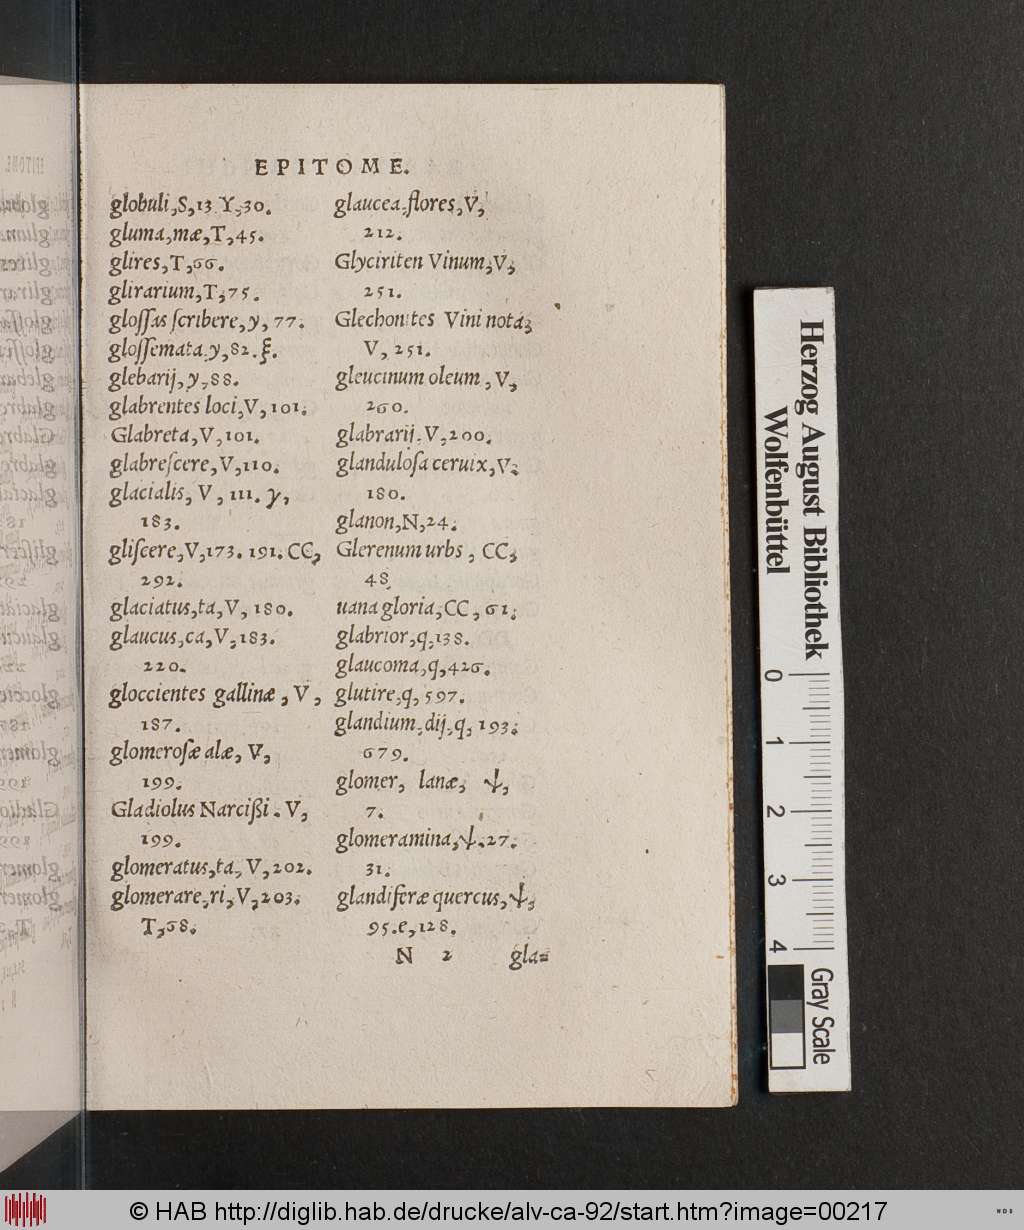 EPITOME.
globuli, S, 13 Y, 30.
gluma, mæ, T, 45.
glires, T, 66.
glirarium, T, 75.
gloſſas ſcribere, y, 77.
gloſſemata. y, 82. ξ.
glebarij, y, 88.
glabrentes loci, V, 101.
Glabreta, V, 101.
glabreſcere, V, 110.
glacialis, V, 111. y,
183.
gliſcere, V, 173. 191. CC,
292.
glaciatus, ta, V, 180.
glaucus, ca, V, 183.
220.
gloccientes gallinæ, V,
187.
glomeroſæ alæ, V,
199.
Gladiolus Narcißi. V,
199.
glomeratus, ta, V, 202.
glomerare, ri, V, 203.
T, 68.
glaucea, flores, V,
212.
Glyciriten Vinum, V,
251.
Glechonites Vini nota,
V, 251.
gleucinum oleum, V,
260.
glabrarij, V, 200.
glanduloſa ceruix, V,
180.
glanon, N, 24.
Glerenum urbs, CC,
48
uana gloria, CC, 61.
glabrior, q, 138.
glaucoma, q, 426.
glutire, q, 597.
glandium, dij, q, 193.
679.
glomer, lanæ, ψ,
7.
glomeramina, ψ. 27.
31.
glandiferæ quercus, ψ,
95. e, 128.
N 2 gla=
Herzog August Bibliothek
Wolfenbüttel
0 1 2 3 4
Gray Scale
© HAB http://diglib.hab.de/drucke/alv-ca-92/start.htm?image=00217
WDB